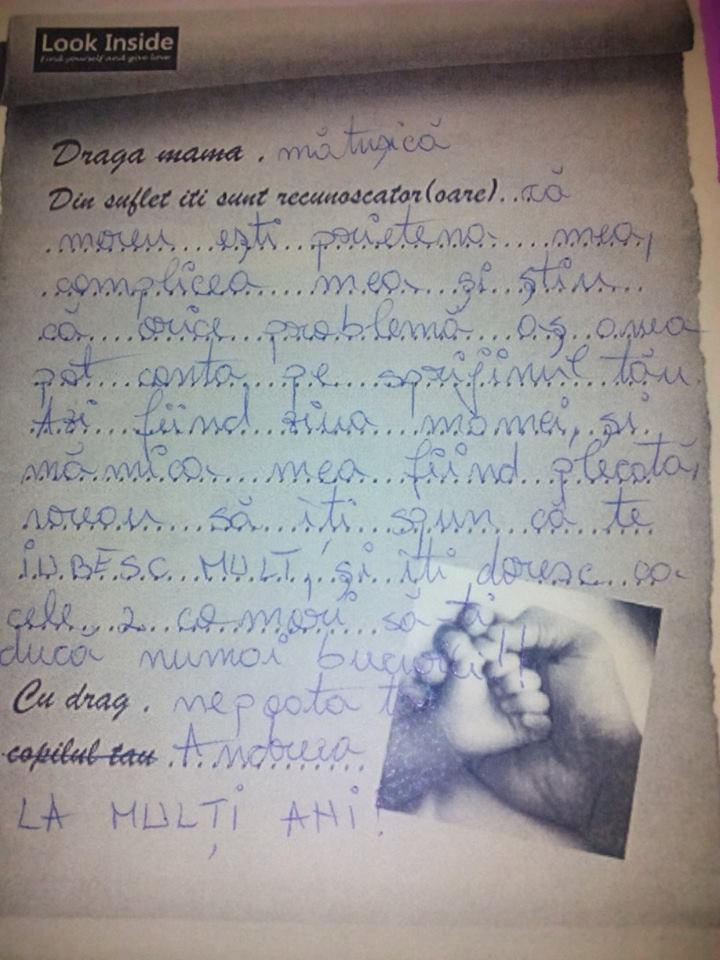 Look Inside
Find yourself and give love
Draga mama . mătușică
Din suflet iti sunt recunoscator(oare)..că
mereu ești prietena mea,
complicea mea și știu
că orice problemă aș avea
pot conta pe sprijinul tău.
Azi fiind ziua mamei, și
mămica mea fiind plecată,
vreau să iți spun că te
IUBESC MULT, și iți doresc ca
cele 2 comori să ți
ducă numai bucurii!!
Cu drag . nepoata ta
copilul tau Andreea
LA MULȚI ANI!